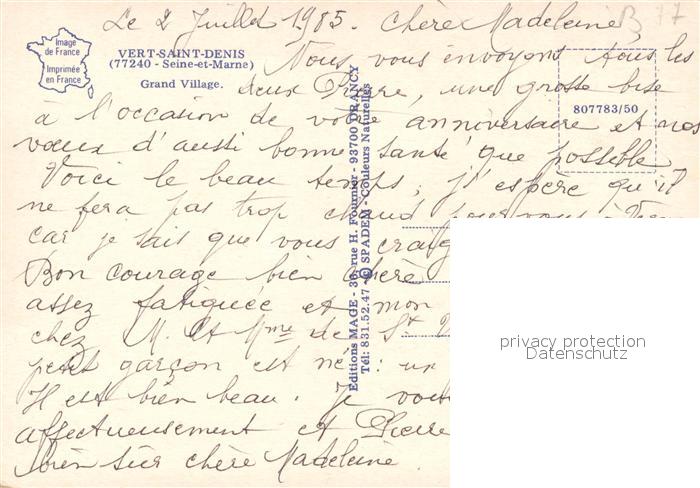 Le 2 Juillet 1985. Chère Madeleine,
B 77
Image
de France
Imprimée
en France
VERT-SAINT-DENIS
(77240 - Seine-et-Marne)
Grand Village.
Nous vous envoyons tous les
deux Pierre, une grosse bise
à l'occasion de votre anniversaire et nos
vœux d'aussi bonne santé que possible
Voici le beau temps, j'espère qu'il
ne fera pas trop chaud pour vous à
car je sais que vous
Bon courage bien chère
assez fatiguée et mon
chez M. et Mme de St
petit garçon est né : un
Il est bien beau. Je
affectueusement et Pierre
bien sûr chère Madeleine.
807783/50
Editions MAGE - 36, rue H. Fournier - 93700 DRANCY
Tél: 831.52.47 - © SPADEM - Couleurs Naturelles
privacy protection
Datenschutz